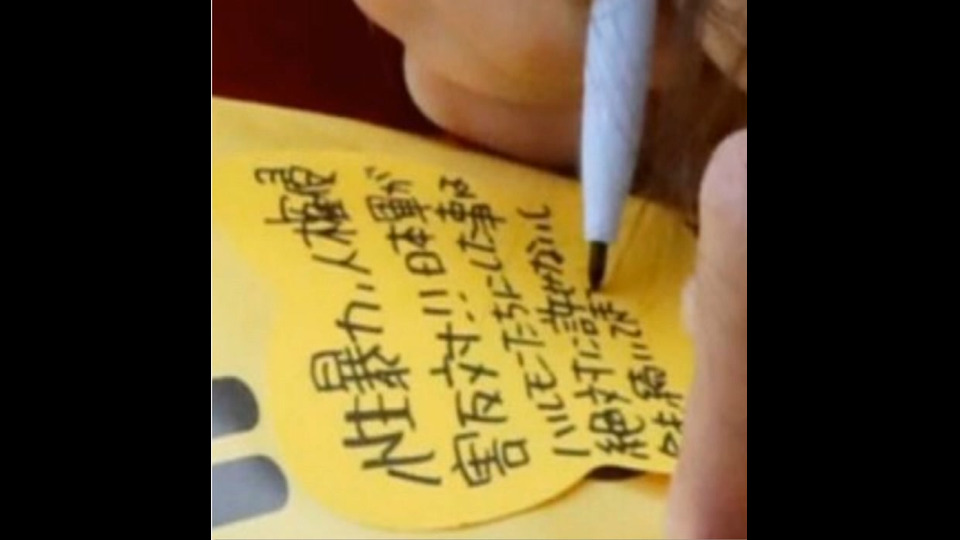 性暴力、人権侵
害反対!! 日本軍が
ハルモニたちにした事
絶対に許せないし